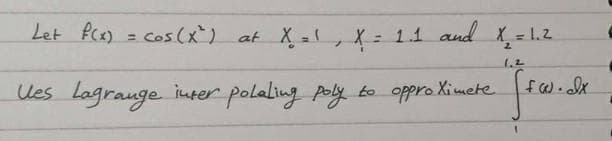 Let f(x) = cos(x²) at X₀ = 1 , X₁ = 1.1 and X₂ = 1.2
Ues Lagrange inter polaling poly to opproximete ∫₁^1.2 f(x).dx